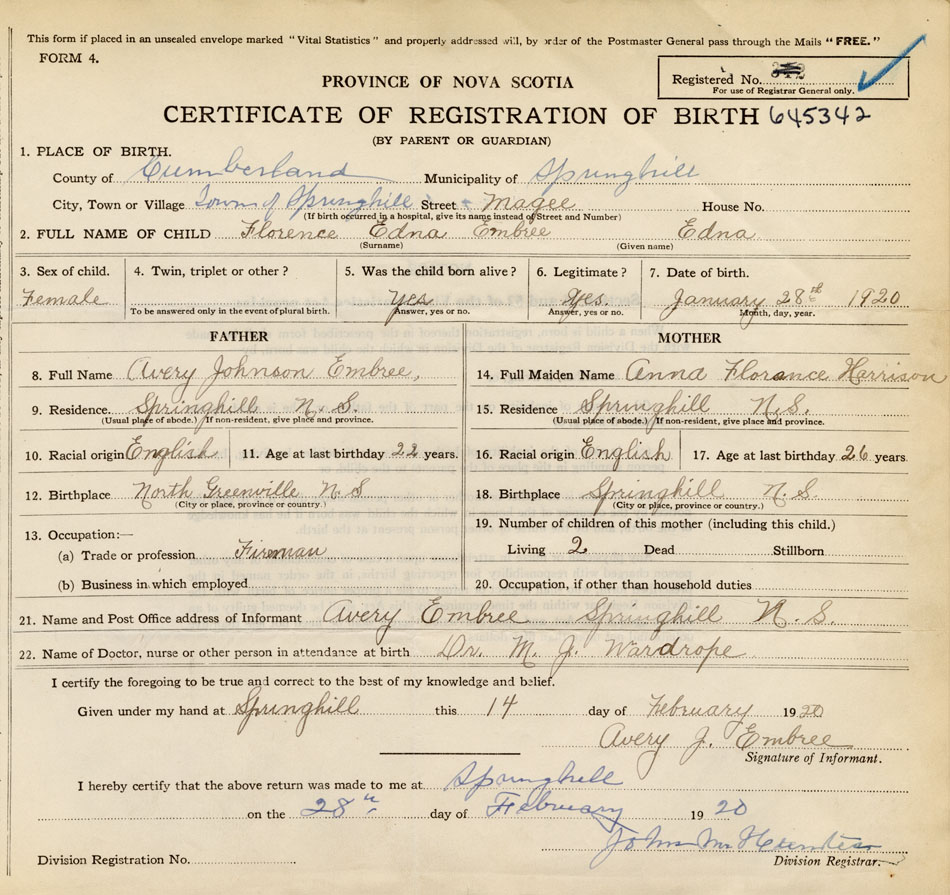 This form if placed in an unsealed envelope marked "Vital Statistics" and properly addressed will, by order of the Postmaster General pass through the Mails "FREE."
FORM 4.
Registered No. 342
For use of Registrar General only.
PROVINCE OF NOVA SCOTIA
CERTIFICATE OF REGISTRATION OF BIRTH 645342
(BY PARENT OR GUARDIAN)
1. PLACE OF BIRTH.
County of Cumberland Municipality of Springhill
City, Town or Village Town of Springhill Street Magee House No.
(If birth occurred in a hospital, give its name instead of Street and Number)
2. FULL NAME OF CHILD Florence Edna Embree Edna
(Surname) (Given name)
3. Sex of child. 4. Twin, triplet or other? 5. Was the child born alive? 6. Legitimate? 7. Date of birth.
Female Yes Yes. January 28th 1920
To be answered only in the event of plural birth. Answer, yes or no. Answer, yes or no. Month, day, year.
FATHER MOTHER
8. Full Name Avery Johnson Embree, 14. Full Maiden Name Anna Florance Harrison
9. Residence. Springhill N. S. 15. Residence Springhill N.S.
(Usual place of abode.) If non-resident, give place and province. (Usual place of abode.) If non-resident, give place and province.
10. Racial origin English 11. Age at last birthday 22 years. 16. Racial origin English 17. Age at last birthday 26 years.
12. Birthplace North Greenville N. S 18. Birthplace Springhill N. S.
(City or place, province or country.) (City or place, province or country.)
13. Occupation:— 19. Number of children of this mother (including this child.)
(a) Trade or profession Fireman Living 2 Dead Stillborn
(b) Business in which employed 20. Occupation, if other than household duties
21. Name and Post Office address of Informant Avery Embree Springhill N. S.
22. Name of Doctor, nurse or other person in attendance at birth Dr. M. J. Wardrope
I certify the foregoing to be true and correct to the best of my knowledge and belief.
Given under my hand at Springhill this 14 day of February 1920
Avery J. Embree
Signature of Informant.
I hereby certify that the above return was made to me at Springhill
on the 28th day of February 1920
John M Hunter
Division Registration No. Division Registrar.